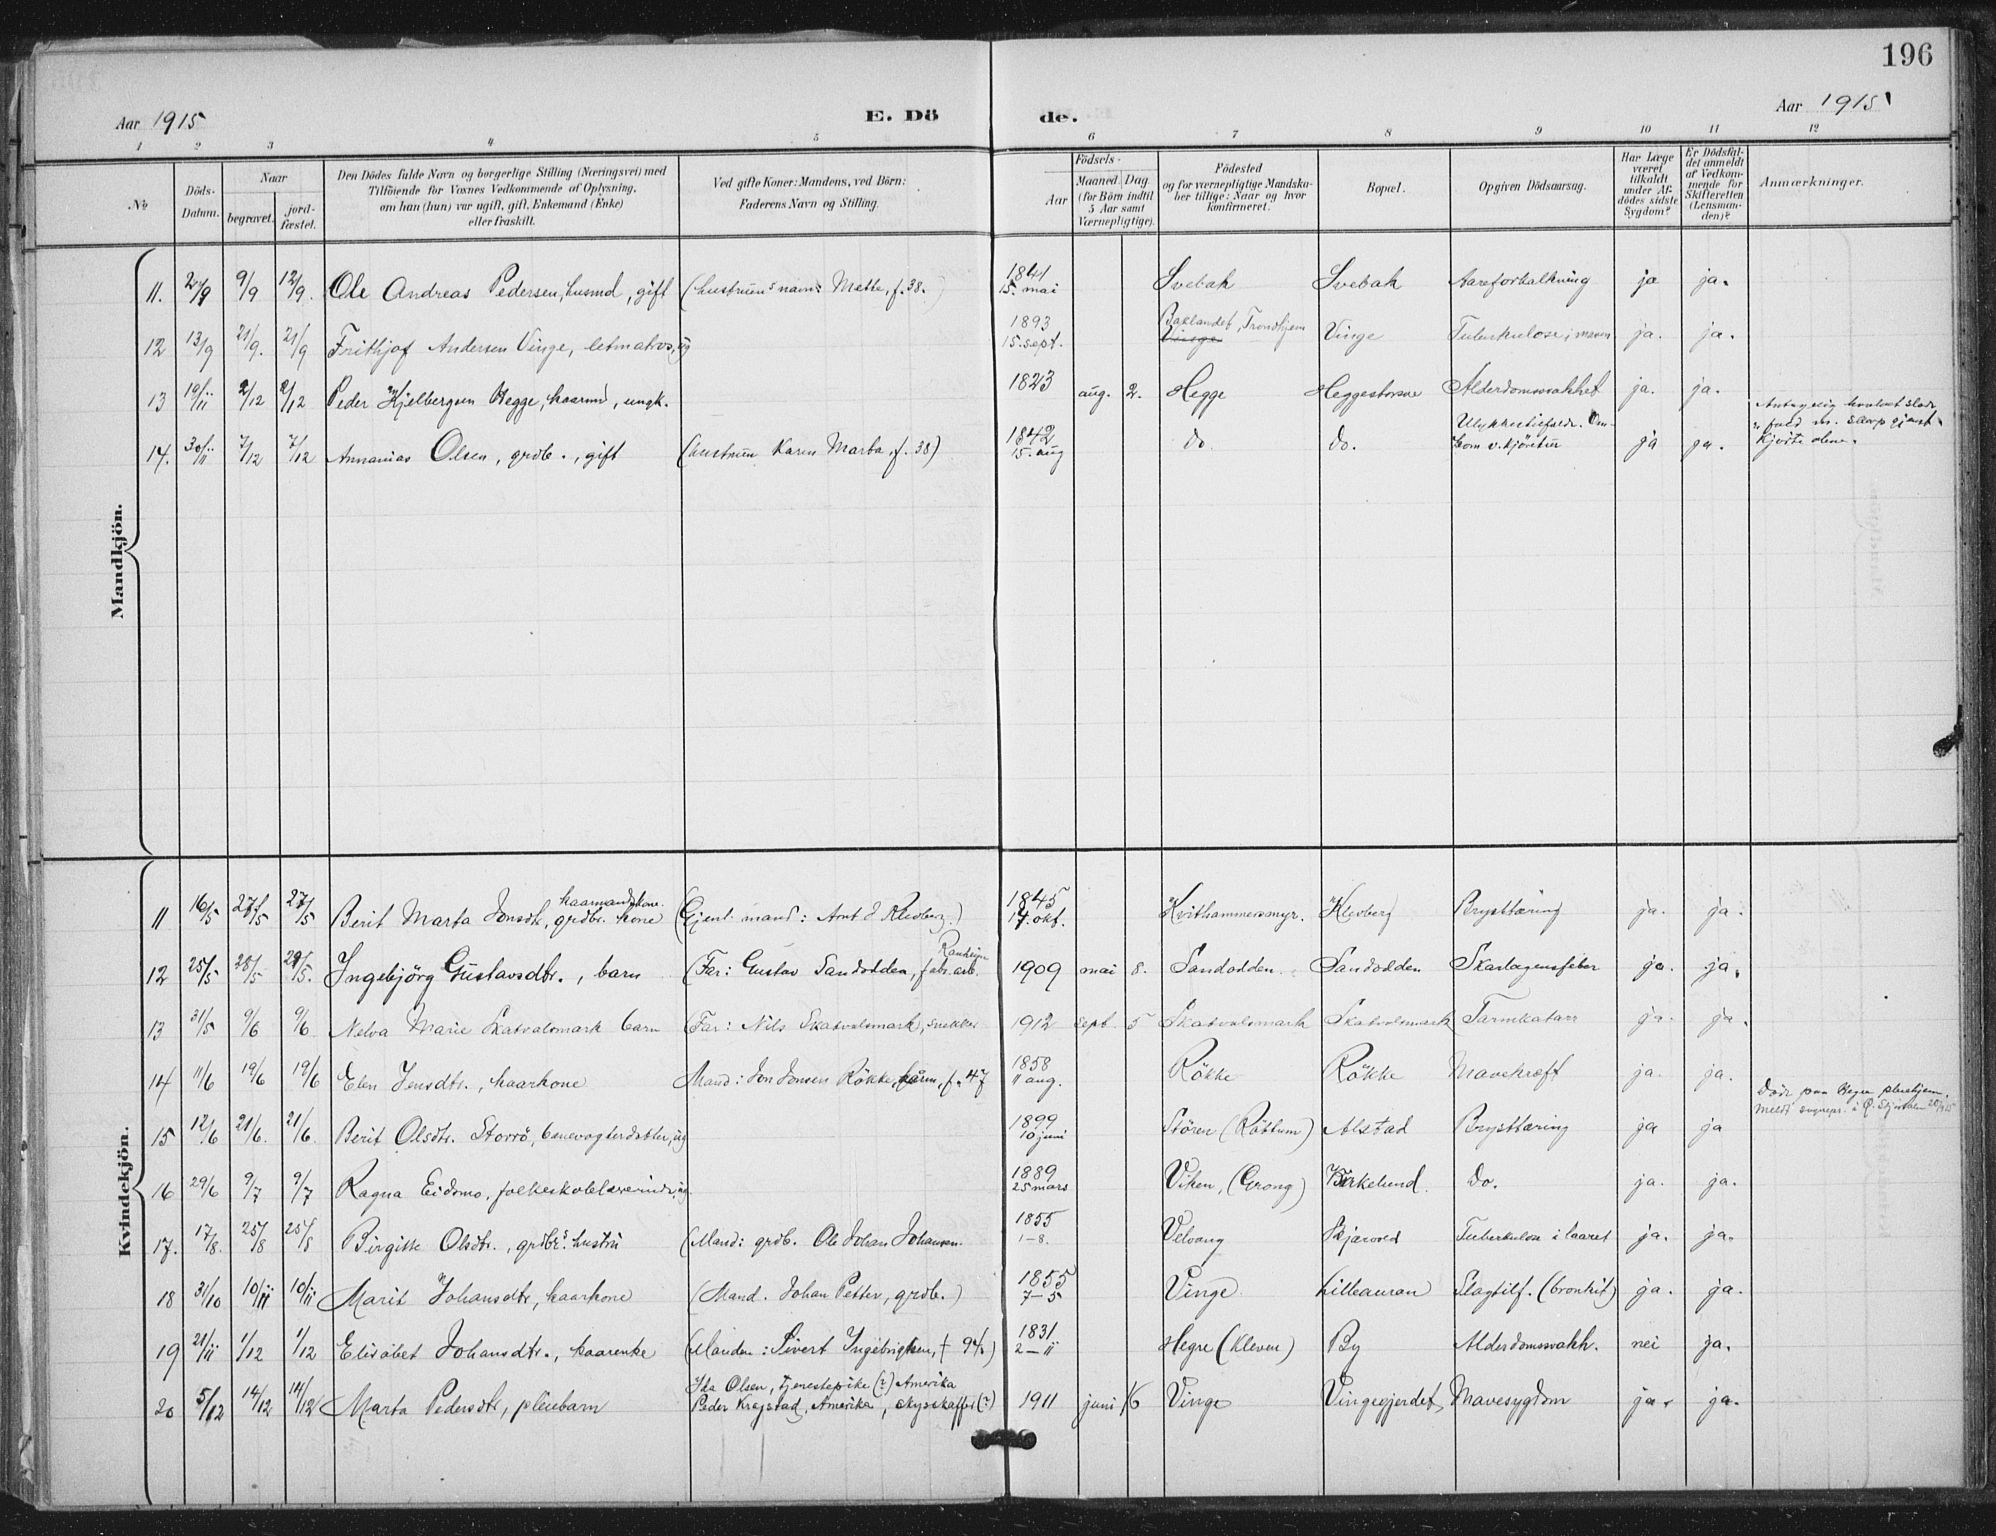 196
Aar 1915
E. Dö
de.
Aar 1915
1 2 3 4 5 6 7 8 9 10 11 12
No
Döds-Datum.
Naar
begravet.
jord-fæstet.
Den Dödes fulde Navn og borgerlige Stilling (Næringsvei) med
Tilföiende for Voxnes Vedkommende af Oplysning,
om han (hun) var ugift, gift, Enkemand (Enke)
eller fraskilt.
Ved gifte Koner: Mandens, ved Börn:
Faderens Navn og Stilling.
Födsels-
Aar
Maaned Dag
(for Börn indtil
5 Aar samt
Værnepligtige).
Födested
og for værnepligtige Mandska-
ber tillige: Naar og hvor
konfirmeret.
Bopæl.
Opgiven Dödsaarsag.
Har Læge
været
tilkaldt
under Af-
dödes sidste
Sygdom?
Er Dödsfal-
det anmeldt
af Vedkom-
mende for
Skifteretten
(Lensman-
den)?
Anmærkninger.
Mandkjön.
11. 9/9 12/9. Ole Andreas Pedersen, husmd, gift (hustruens navn: Mette, f. 38. 1841 15. mai Svebak Svebak Aareforkalkning ja ja.
12 13/9 21/9. 21/9 Frithjof Andersen Vinge, letmatros, ug 1893 15. sept. Baklandet, Trondhjem Vinge Vinge Tuberkulose i maven ja. ja.
13 19/11 2/12 2/12 Peder Kjelbergsen Hegge, kaarmd, ungk. 1823 aug. 2. Hegge Alderdomssvakhet ja. ja.
14. 30/11 7/12 7/12 Annanias Olsen, grdb., gift (hustruen Karen Marta, f. 38) 1842 15. aug do. do. v. kjöretur ja ja.
kjörte alene.
Kvindekjön.
11 16/5 27/5 27/5 Berit Marta Jonsdtr, grdbr. kone kaarmandskone. (Gjenl. mand: Arnt J Klevberg.) 1845 14. okt. Kvithammersmyr. Klevberg Brysttæring ja. ja.
12 25/5 28/5 29/5. Ingebjörg Gustavsdtr., barn (Far: Gustav Sandodden, fabr.arb. Ranheim 1909 mai 8. Sandodden. Sandodden Skarlagensfeber ja. ja.
13 31/5 9/6 9/6 Nelva Marie Skatvalsmark barn (Far: Nils Skatvalsmark, snekker 1912 sept. 5 Skatvalsmark Skatvalsmark Tarmkatarr ja. ja.
14 11/6 19/6 19/6 Elen Jensdtr., kaarkone Mand: Jon Jonsen Rökke, kårm., f. 47 1858 11 aug. Rökke Rökke Mavekræft ja. ja.
Död paa Hegre pleiehjem.
15 12/6 21/6. 21/6. Berit Olsdtr. Storrö, banevogterdatter, ug 1899 10 juni Stören (Röttum) Alstad Brysttæring ja ja
16 29/6 9/7 9/7 Ragna Eidsmo, folkeskolelærerinde, ug 1889 25 mars Viken, (Grong) Birkelund. do. ja. ja.
17. 17/8. 25/8 25/8 Birgitte Olsdtr., grdbr.s hustru (Mand: grdb. Ole Johan Johansen. 1855 1-8. Velvang Tuberkulose i laaret ja. ja.
18 31/10 10/11 10/11 Marit Johansdtr, kaarkone (Mand. Johan Petter, grdb.) 1855 7-5 Vinge Lilleauran Slagtilf. (bronkit) ja. ja.
19 21/11 1/12 1/12 Elisabet Johansdtr., kaarenke (Manden: Sivert Ingebrigtsen, † 94) 1831 2-11 Hegre (Kleven) By Alderdomssvakh. nei ja.
Ida Olsen, tjenestepike (?) Amerika
20 5/12 14/12 14/12 Marta Pedersdtr, pleiebarn Peder Krogstad, Amerika, (?) 1911 juni 16 Vinge Vingegjerdet, Mavesygdom ja. ja.